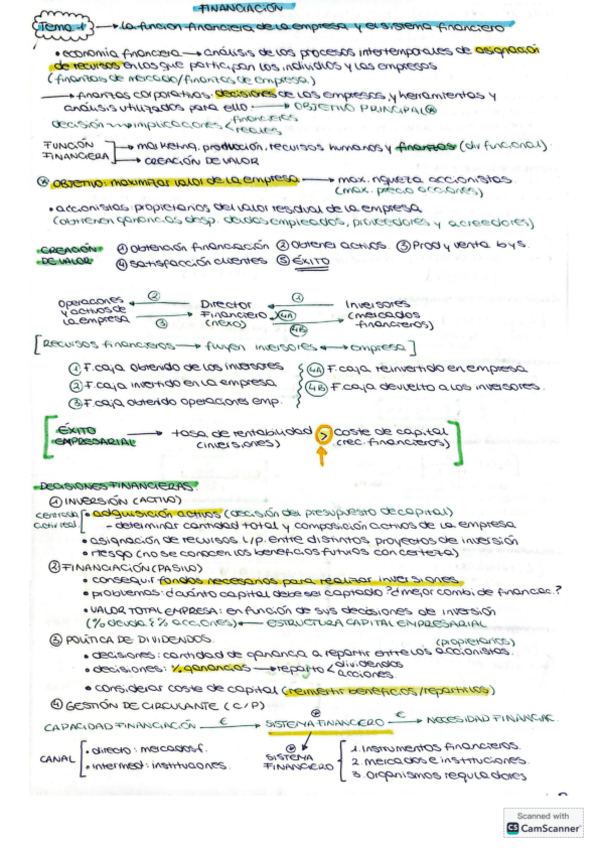 FINANCIACIÓN
Tema 1 → la función financiera de la empresa y el sistema financiero
• economía financiera → análisis de los procesos intertemporales de asignación
de recursos en los que participan los individuos y las empresas
(finanzas de mercado/finanzas de empresa)
→ finanzas corporativas: decisiones de las empresas, y herramientas y
análisis utilizados para ello → OBJETIVO PRINCIPAL
decisión → implicaciones < financieras
reales
FUNCIÓN FINANCIERA
→ marketing, producción, recursos humanos y finanzas (div funcional)
→ CREACIÓN DE VALOR
OBJETIVO: maximizar valor de la empresa → max. riqueza accionistas
(max. precio acciones)
• accionistas propietarios del valor residual de la empresa
(obtienen ganancias desp. deudas empleados, proveedores y acreedores)
CREACIÓN DE VALOR
① obtención financiación ② Obtener activos. ③ Prod y venta b y s.
④ satisfacción clientes ⑤ ÉXITO
Operaciones y activos de la empresa
② ③
Director Financiero (nexo)
① 4A 4B
Inversores (mercados financieros)
[Recursos financieros → fluyen inversores ↔ empresa]
① F. caja obtenido de los inversores
4A F. caja reinvertido en empresa
② F. caja invertido en la empresa
4B F. caja devuelto a los inversores.
③ F. caja obtenido operaciones emp.
ÉXITO EMPRESARIAL → tasa de rentabilidad (inversiones) > coste de capital (rec. financieros)
DECISIONES FINANCIERAS
① INVERSIÓN (ACTIVO)
• adquisición activos (decisión del presupuesto de capital)
- determinar cantidad total y composición activos de la empresa
• asignación de recursos L/P. entre distintos proyectos de inversión
• riesgo (no se conocen los beneficios futuros con certeza)
② FINANCIACIÓN (PASIVO)
• conseguir fondos necesarios para realizar inversiones
• problemas: ¿cuánto capital debe ser captado? ¿mejor combi de financiac.?
• VALOR TOTAL EMPRESA: en función de sus decisiones de inversión
(% deuda & % acciones) ← ESTRUCTURA CAPITAL EMPRESARIAL
③ POLÍTICA DE DIVIDENDOS.
(propietarios)
• decisiones: cantidad de ganancia a repartir entre los accionistas.
• decisiones: % ganancias → reparto < dividendos
acciones.
• considerar coste de capital (reinvertir beneficios/repartirlos)
④ GESTIÓN DE CIRCULANTE (C/P)
CAPACIDAD FINANCIACIÓN —€→ SISTEMA FINANCIERO —€→ NECESIDAD FINANCIAC.
CANAL
• directo: mercados f.
• intermed: instituciones.
SISTEMA FINANCIERO
1. Instrumentos financieros.
2. mercados e instituciones.
3. organismos reguladores
Scanned with
CS CamScanner